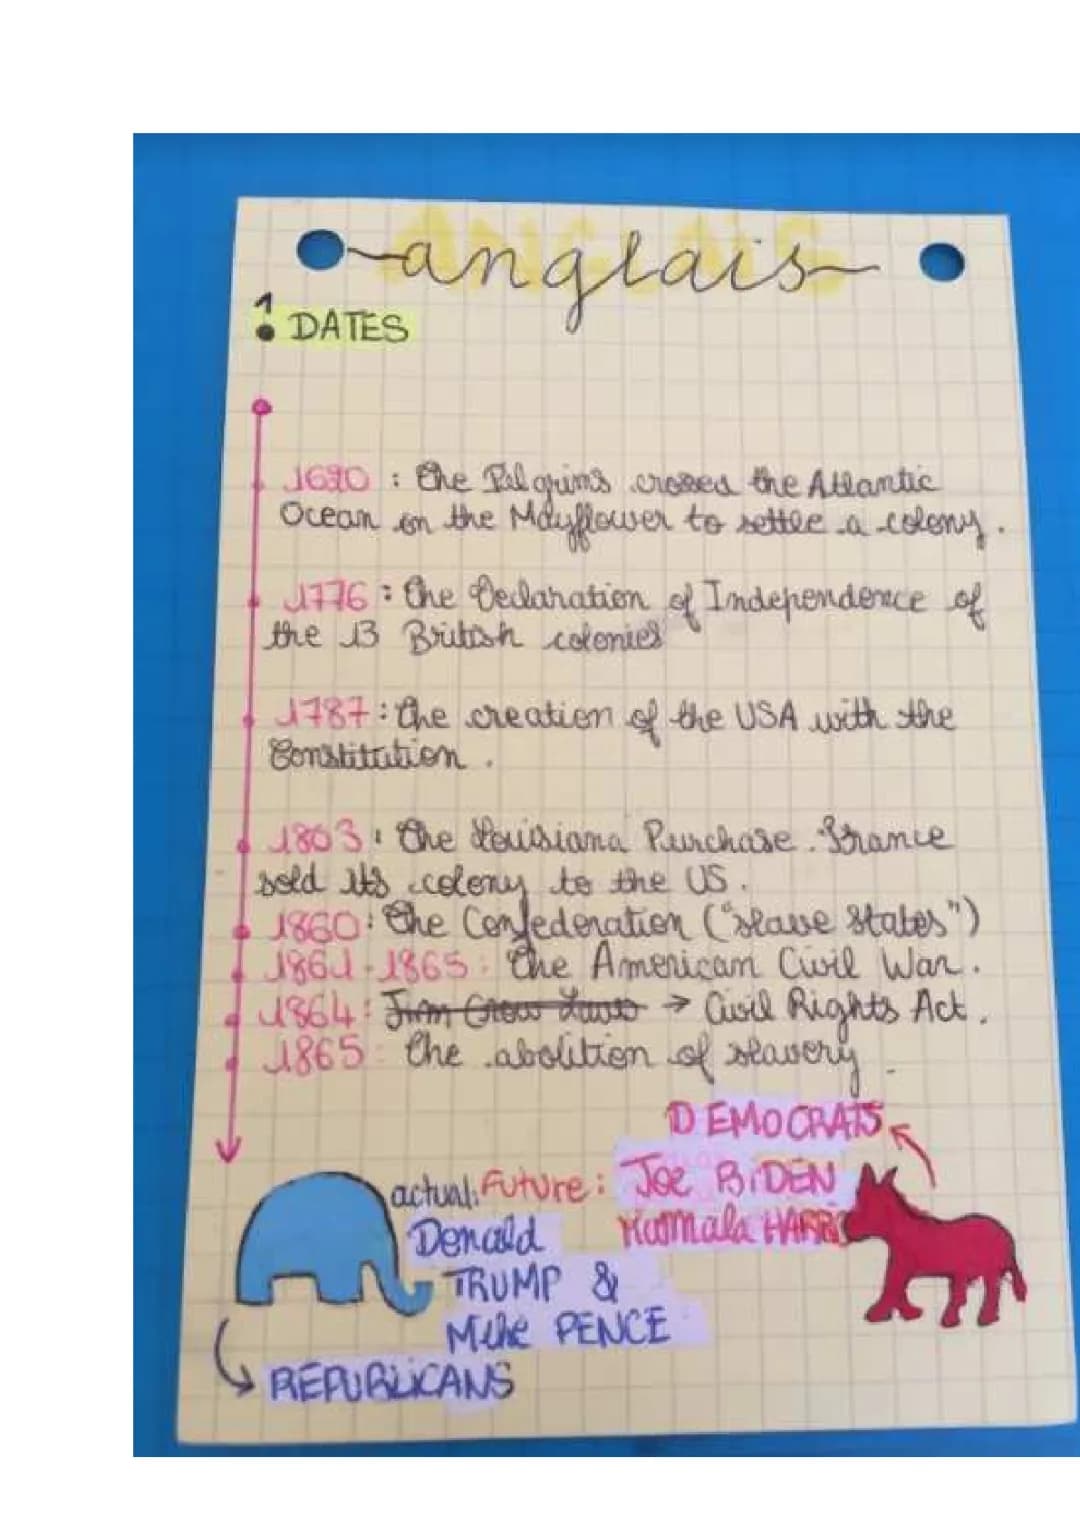 anglais
1 DATES
1620 : The Pilgrims crossed the Atlantic
Ocean on the Mayflower to settle a colony.
1776 : The Declaration of Independence of
the 13 British colonies
1787 : The creation of the USA with the
Constitution.
1803 : The Louisiana Purchase. France
sold its colony to the US.
1860 : The Confederation ("slave states")
1861-1865 : The American Civil War.
1864 : Jim Crow Laws → Civil Rights Act.
1865 : The abolition of slavery.
DEMOCRATS
actual: Future : Joe BIDEN
Donald Kammala HARRIS
TRUMP &
Mike PENCE
REPUBLICANS